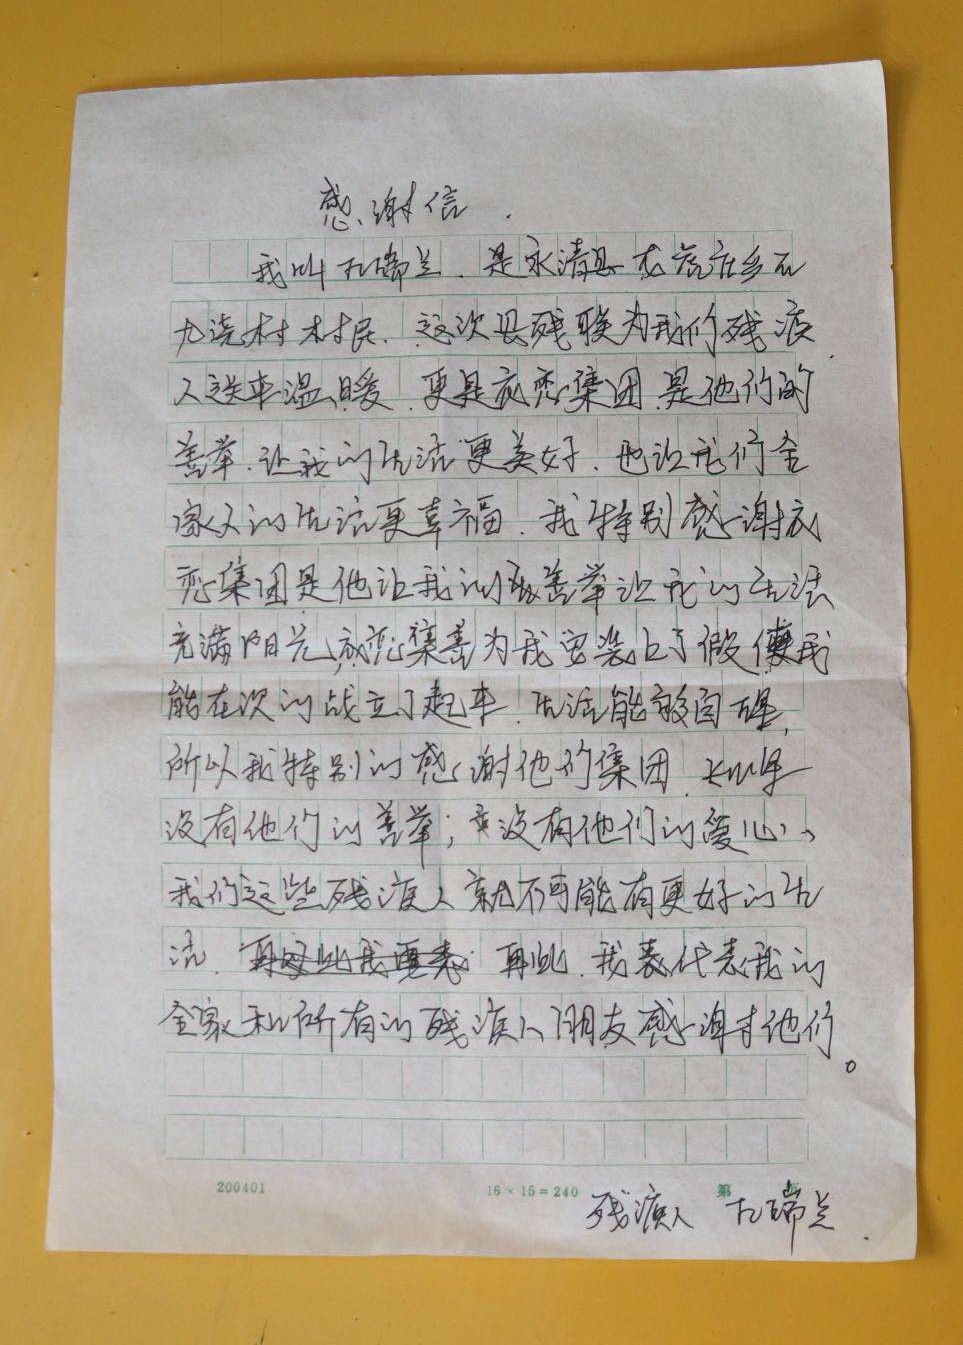 感谢信.
我叫 瑞兰. 是永清县 乡
村村民. 这次县残联为我们残疾
人送来温暖. 更是 集团 是他们的
善举. 让我的生活更美好. 也让我们全
家人的生活更幸福. 我特别感谢
集团是他让我的 善举让我的生活
充满阳光, 集善为我安装上了假 使我
能在次的战立了起来. 生活能够自理,
所以我特别的感谢他们集团. 如果
没有他们的善举; 没有他们的爱心、
我们这些残疾人就不可能有更好的生
活. 再此. 我 代表我的
全家和所有的残疾人朋友感谢他们。
200401 16×15=240 第 页
残疾人 瑞兰.